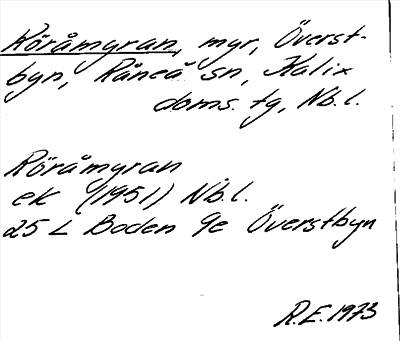 Röråmyran, myr, Överst-
byn, Råneå sn, Kalix
doms. tg, Nb.l.
Röråmyran
ek (1951) Nb.l.
25 L Boden 9e Överstbyn
R.E. 1973